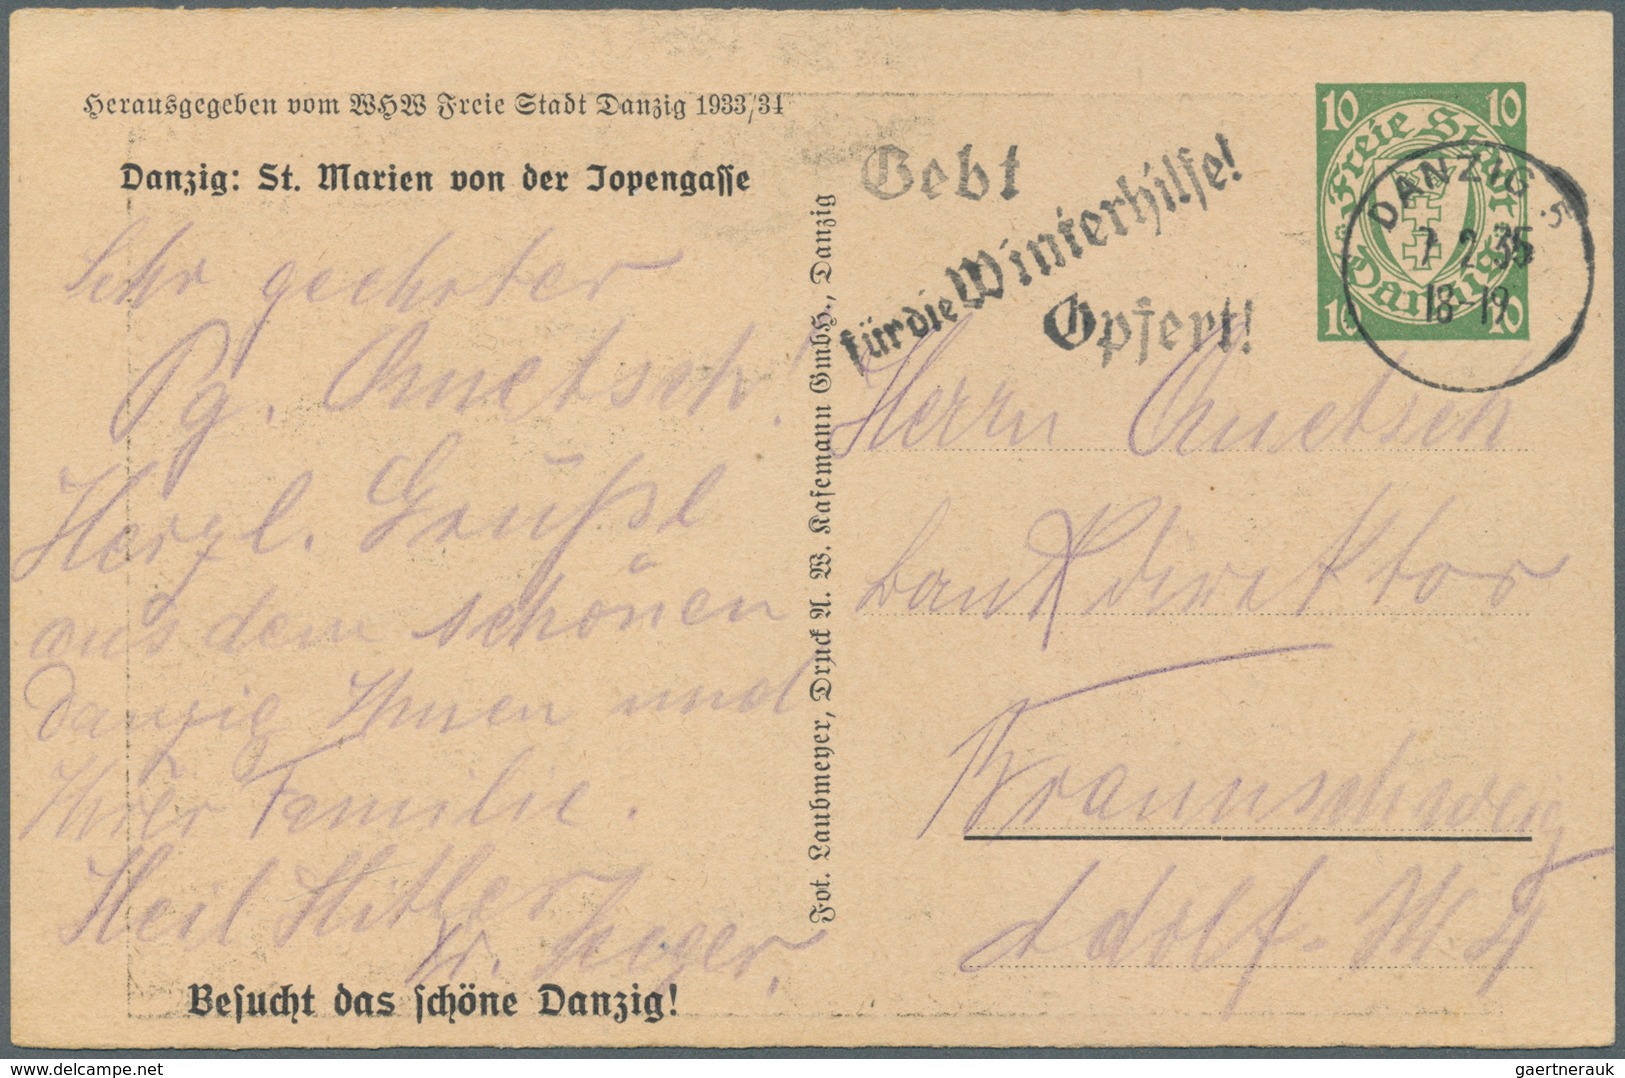 Herausgegeben vom WHW Freie Stadt Danzig 1933/34
Danzig: St. Marien von der Jopengasse
Sehr geehrter
Pg.
Herzl. Grüße
aus dem schönen
Danzig Ihnen und
Ihrer Familie.
Heil Hitler
Besucht das schöne Danzig!
Fot. Laubmeyer, Druck A. W. Kafemann GmbH., Danzig
Gebt
für die Winterhilfe!
Opfert!
10 10
Freie Stadt Danzig
10 10
DANZIG 5
7 2 35
18-19
Herrn
Bankdirektor
Braunschweig
Adolf-
gaertnerauk